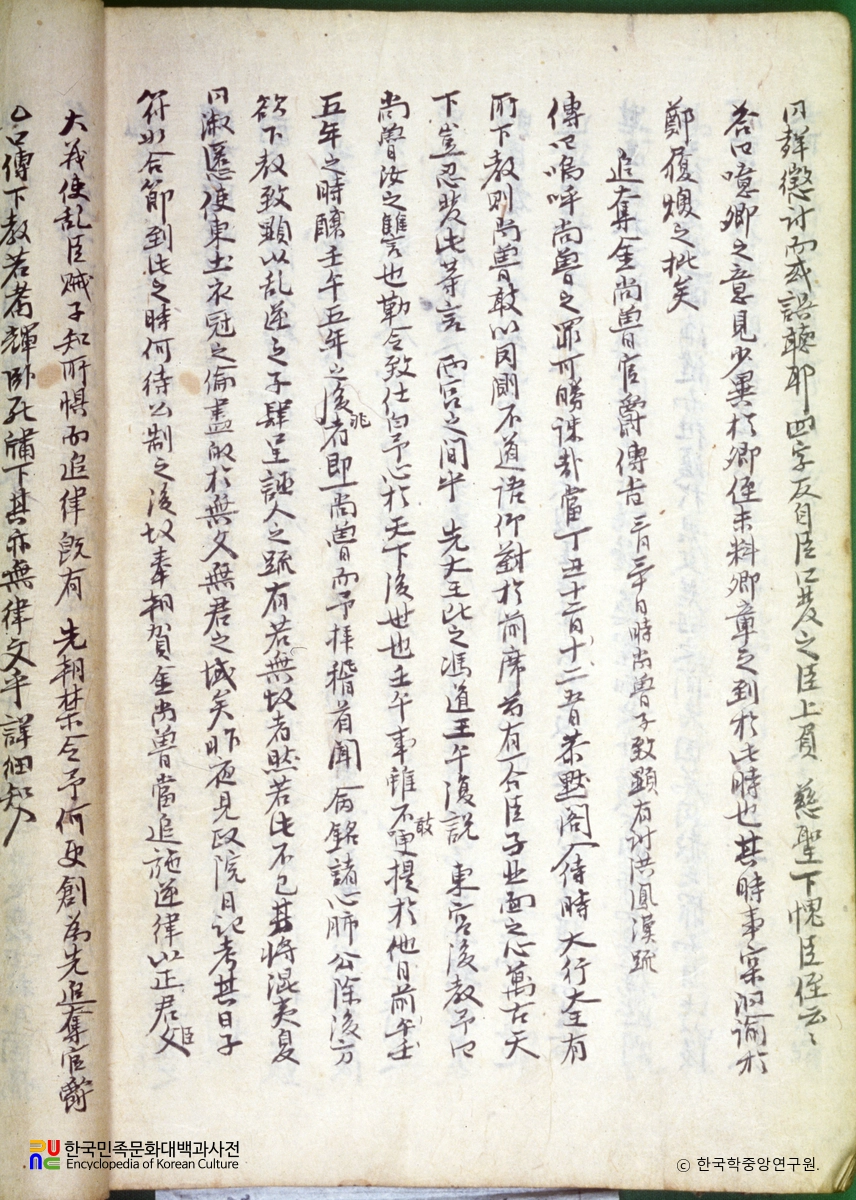 日群懲討而或誤聽耶四字反自臣口發之臣上負 慈聖下愧臣侄云云
答曰噫卿之意見少異於卿侄未料卿章之到於此時也其時事寀洞諭於
鄭履煥之批矣
追奪金尚魯官爵傳旨 三月三十日時尚魯子致顯有討洪鳳漢疏
傳曰嗚呼尚魯之罪可勝誅哉當丁丑十二月十五日恭默閤入侍時大行大王有
所下教則尚魯敢以罔測不道語仰對於前席若有一分臣子北面之心萬古天
下豈忍發此等言 兩宮之間乎 先大王比之馮道壬午復說 東宮後教予曰
尚魯汝之讐也勒令致仕白予心於天下後世也壬午事雖不敢更提於他日前壬午
五年之時釀壬午五年之後兆者即一尚魯而予拜稽首聞命銘諸心肺公除後方
欲下教致顯以亂逆之子肆呈誣人之疏有若無故者然若此不已其將混夷夏
同淑慝使東土衣冠之倫盡敀於無父無君之域矣昨夜見政院日記考其日子
符如合節到此之時何待公制之後故奉朝賀金尚魯當追施逆律以正君臣父
大義使亂臣賊子知所懼而追律旣有 先朝禁令予何更創爲先追奪官爵
口傳下教若耆輝臥死牖下其亦無律文乎詳細知入
한국민족문화대백과사전
Encyclopedia of Korean Culture
© 한국학중앙연구원.